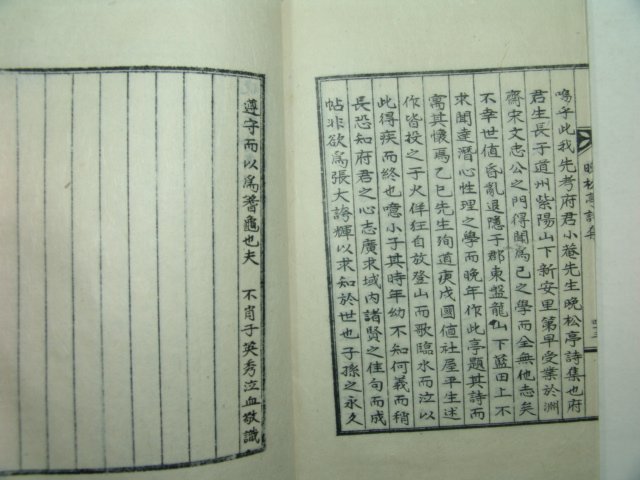 嗚乎此我先考府君小菴先生晩松亭詩集也府
君生長于道州紫陽山下新安里第早受業於淵
齋宋文忠公之門得聞爲己之學而全無他志矣
不幸世値昏亂退隱于郡東盤龍山下藍田上不
求聞達潛心性理之學而晩年作此亭題其詩而
寓其懷焉乙巳先生殉道庚戌國値社屋平生述
作皆投之于火佯狂自放登山而歌臨水而泣以
此得疾而終也噫小子其時年幼不知何義而稍
長恐知府君之心志廣求域內諸賢之佳句而成
帖非欲爲張大誨輝以求知於世也子孫之永久
晩松亭詩集
遵守而以爲蓍龜也夫　不肖子英秀泣血敬識